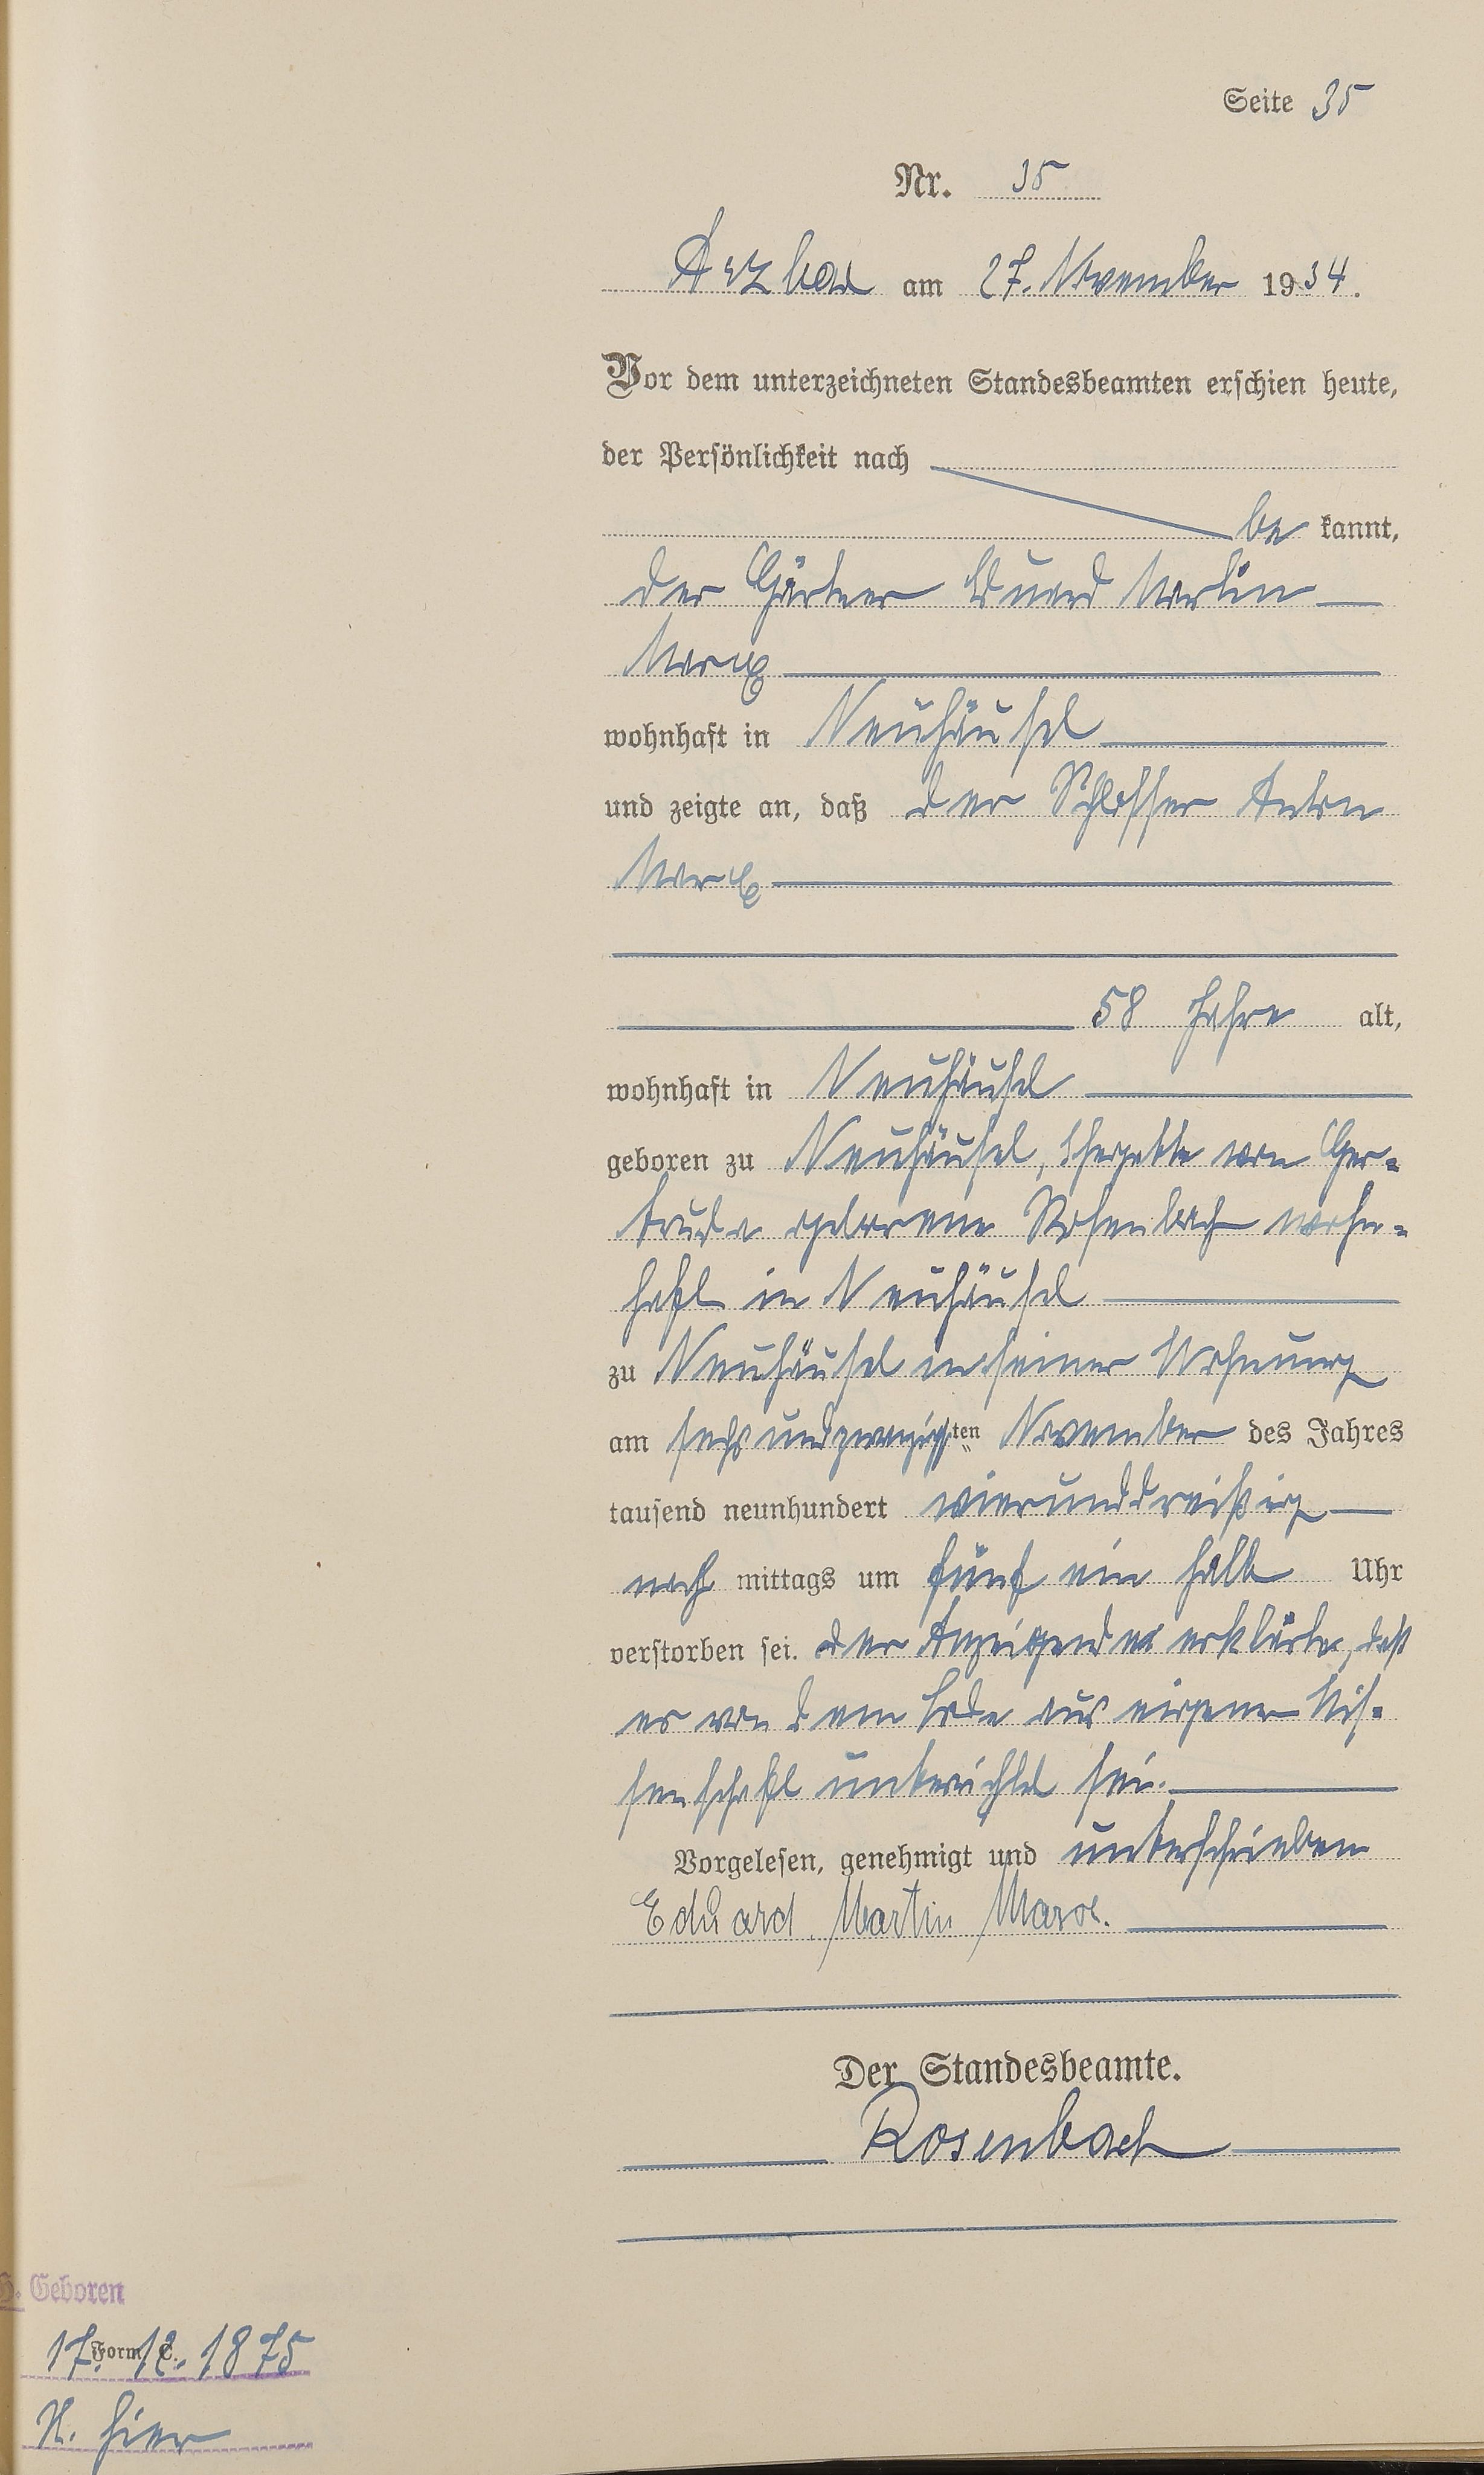 Seite 35
Nr. 35
Arzbach am 27. November 1934.
Vor dem unterzeichneten Standesbeamten erschien heute,
der Persönlichkeit nach
be kannt,
der Gärtner Eduard Martin
Marx
wohnhaft in Neuhäusel
und zeigte an, daß der Schlosser Anton
Marx
58 Jahre alt,
wohnhaft in Neuhäusel
geboren zu Neuhäusel, Ehegatte von Ger-
truda geborene Rosenbach wohn-
haft in Neuhäusel
zu Neuhäusel in seiner Wohnung
am sechsundzwanzigsten November des Jahres
tausend neunhundert vierunddreißig
nach mittags um fünf ein halb Uhr
verstorben sei. der Anzeigende erklärte, daß
er von dem Tode aus eigener Wis-
senschaft unterrichtet sei.
Vorgelesen, genehmigt und unterschrieben
Eduard Martin Marx.
Der Standesbeamte.
Rosenbach
Geboren
17. 12. 1875
Form. C.
N. hier